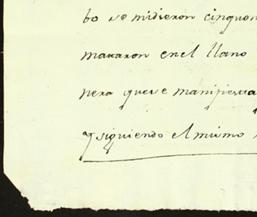 bo se midieron cinquen
maRaron enel llano
pera que se manifiesta
y siguiendo el mismo